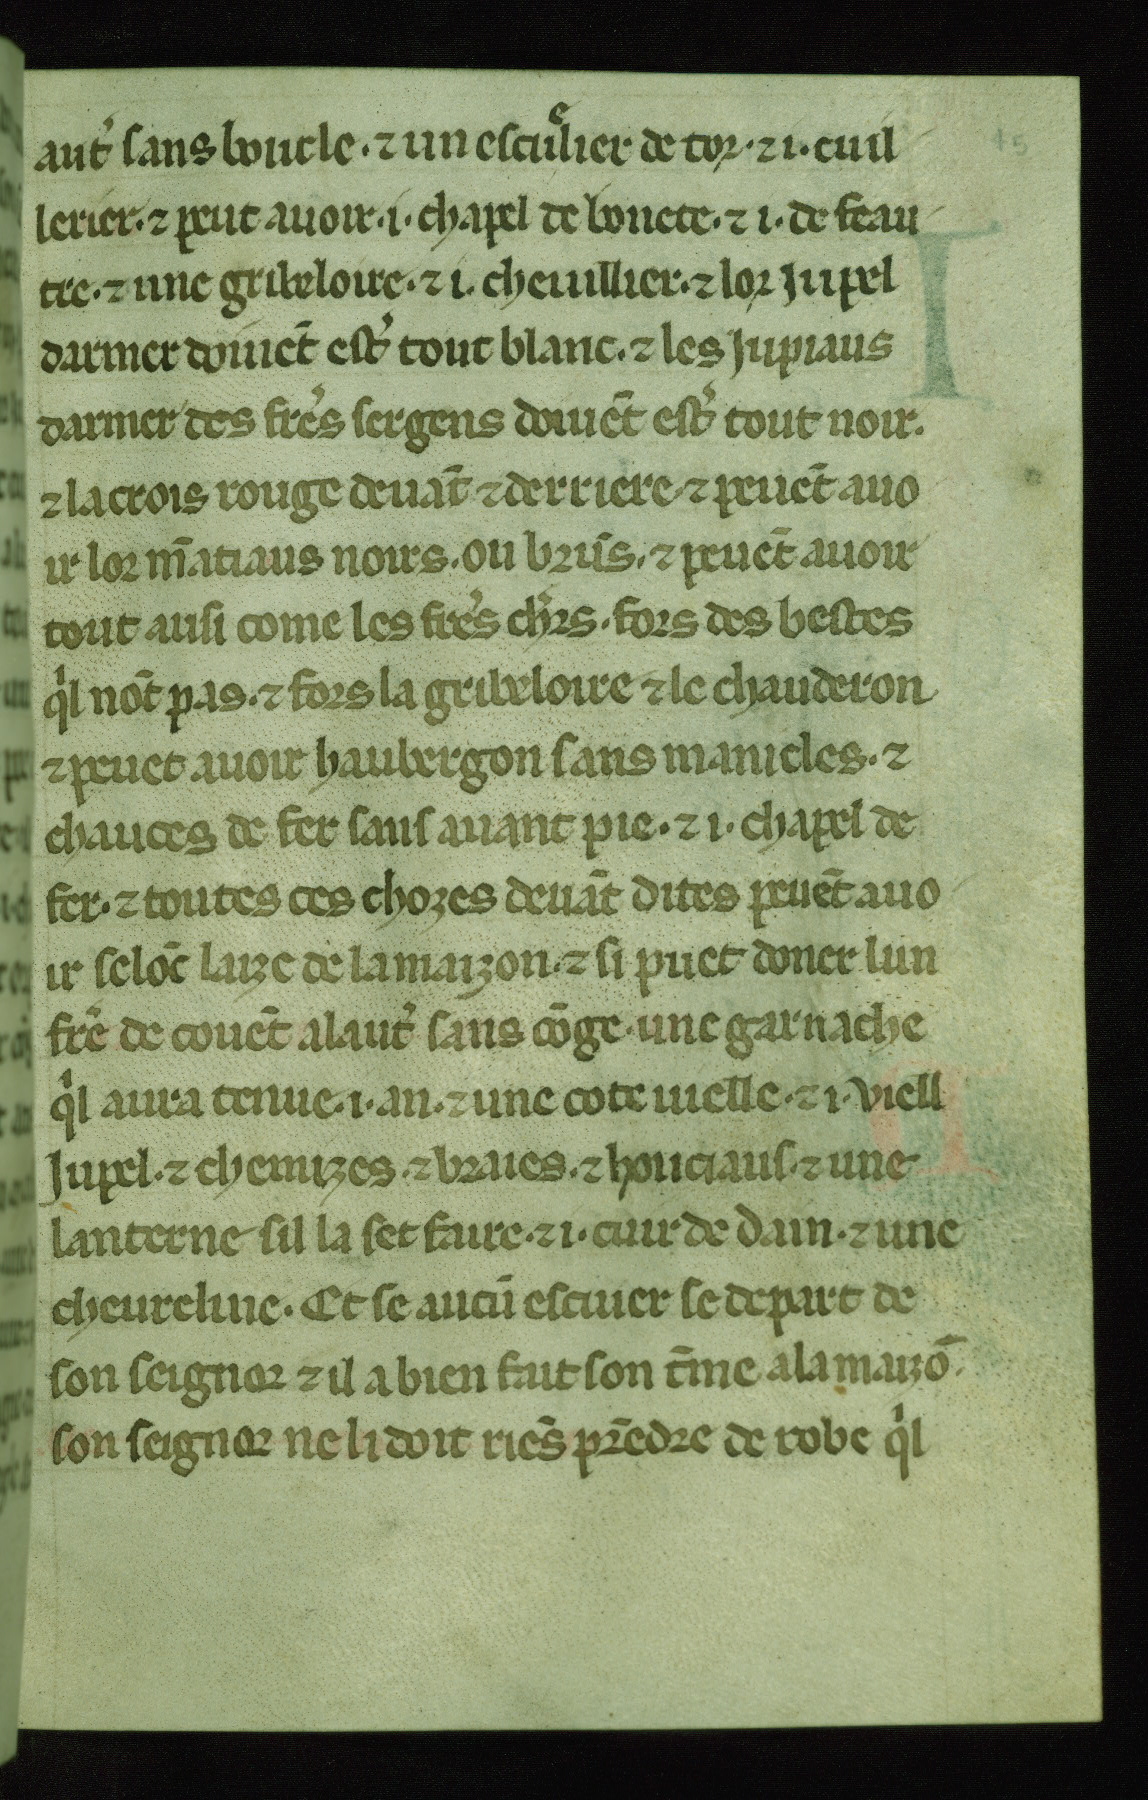 aut̉ sans boucle · ⁊ un escuͤlier de tor · ⁊ ı · cuil
lerier · ⁊ peut avoir · i · chapel de bonete · ⁊ ı · de feau
tre · ⁊ une gribeloire · ⁊ ı · chevillier · ⁊ lor Jupel
darmer doivēt est̉ tout blanc · ⁊ les Jupiaus
darmer des frẻs sergens doivēt est̉ tout noir ·
⁊ la crois rouge devāt ⁊ derriere ⁊ peuēt avo
ir lor m̄atiaus noirs · ou brūs · ⁊ peuēt avoir
tout ausi come les frẻs ch̉rs · fors des bestes
qͥl nōt pas · ⁊ fors la gribeloire ⁊ le chauderon
⁊ peuet avoir haubergon sans manicles · ⁊
chauces de fer sans avant pie · ⁊ ı · chapel de
fer · ⁊ toutes ces chozes devāt dites peuēt avo
ir selōc laize de la maizon · ⁊ si puet doner lun
fre̊ de covēt a laut̉ sans cōge · une garnache
qͥl aura tenue · ı · an · ⁊ une cote vielle · ⁊ ı · viell
Jupel · ⁊ chemizes · ⁊ braies · ⁊ houciaus · ⁊ une
lanterne sil la set faire · ⁊ ı · cuir de dain · ⁊ une
chevreline · Et se aucū escuier se depart de
son seignor ⁊ il a bien fait son t̄me a la maizō ·
son seignor ne li doit riēs pr̄edre de robe qͥl